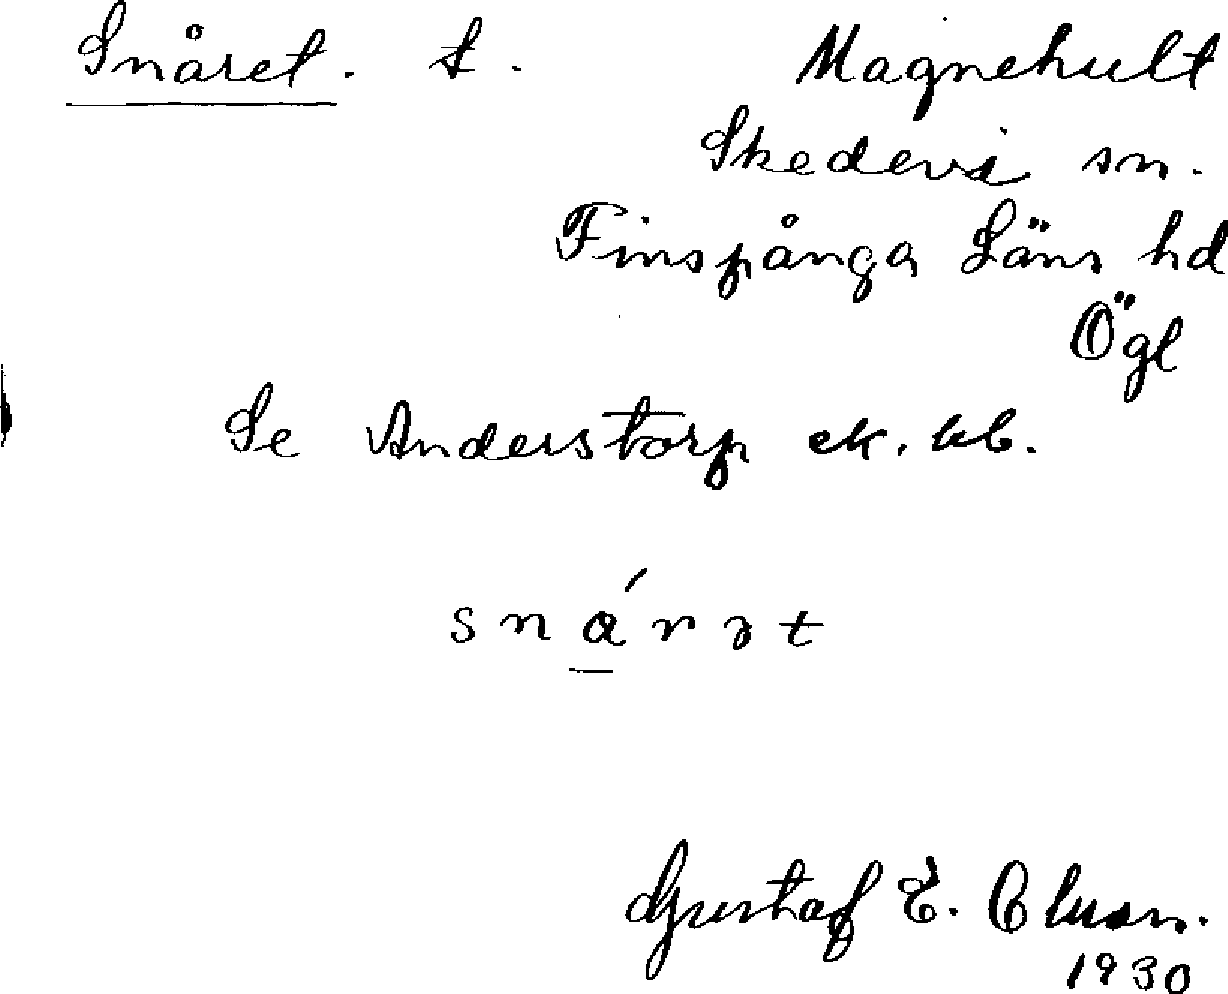 Snåret. t. Magnehult
Skedevi sn.
Finspånga Läns hd
Ögl
Se Anderstorp ek. kb.
snárət
Gustaf E. Clason.
1930